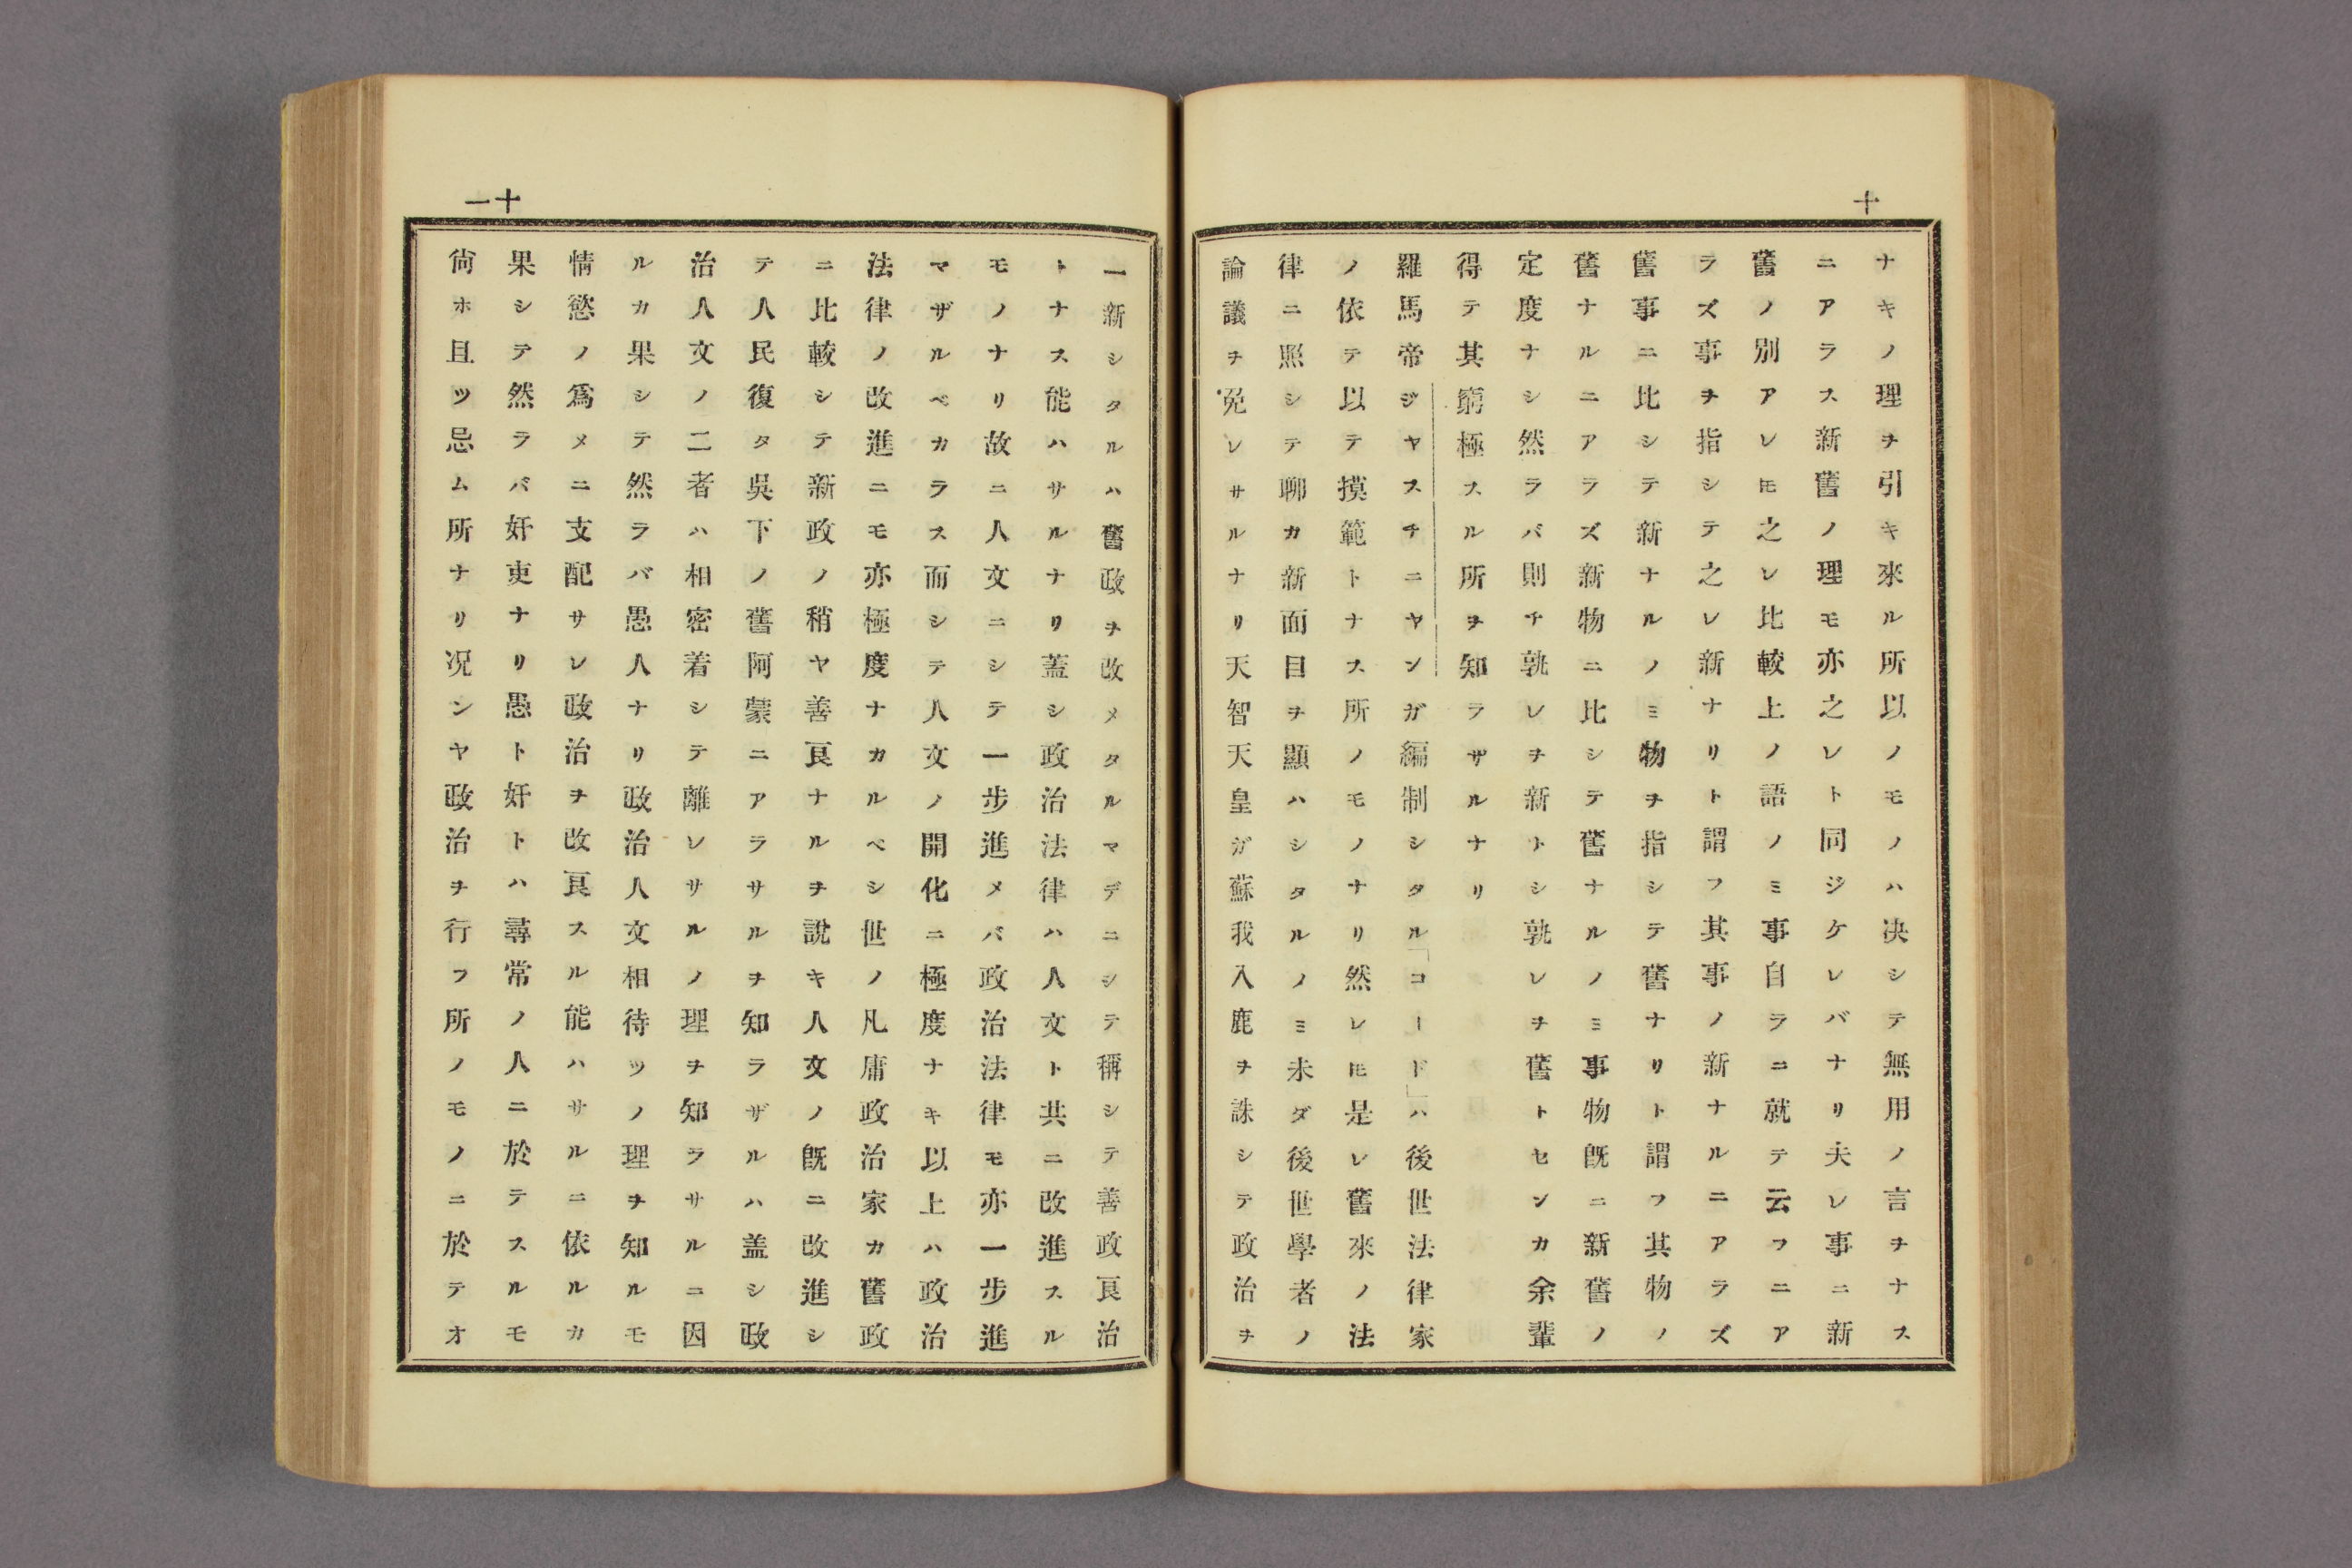 十
ナキノ理ヲ引キ來ル所以ノモノハ決シテ無用ノ言ヲナス
ニアラス新舊ノ理モ亦之レト同ジケレバナリ夫レ事ニ新
舊ノ別アレ𪜈之レ比較上ノ語ノミ事自ラニ就テ云フニア
ラズ事ヲ指シテ之レ新ナリト謂フ其事ノ新ナルニアラズ
舊事ニ比シテ新ナルノミ物ヲ指シテ舊ナリト謂フ其物ノ
舊ナルニアラズ新物ニ比シテ舊ナルノミ事物既ニ新舊ノ
定度ナシ然ラバ則チ孰レヲ新トシ孰レヲ舊トセンカ余輩
得テ其窮極スル所ヲ知ラザルナリ
羅馬帝ジヤスチニヤンガ編制シタル「コード」ハ後世法律家
ノ依テ以テ摸範トナス所ノモノナリ然レ𪜈是レ舊來ノ法
律ニ照シテ聊カ新面目ヲ顯ハシタルノミ未ダ後世學者ノ
論議ヲ免レサルナリ天智天皇ガ蘇我入鹿ヲ誅シテ政治ヲ
十一
一新シタルハ舊政ヲ改メタルマデニシテ稱シテ善政良治
トナス能ハサルナリ蓋シ政治法律ハ人文ト共ニ改進スル
モノナリ故ニ人文ニシテ一歩進メバ政治法律モ亦一歩進
マザルベカラス而シテ人文ノ開化ニ極度ナキ以上ハ政治
法律ノ改進ニモ亦極度ナカルベシ世ノ凡庸政治家カ舊政
ニ比較シテ新政ノ稍ヤ善良ナルヲ說キ人文ノ既ニ改進シ
テ人民復タ吳下ノ舊阿蒙ニアラサルヲ知ラザルハ盖シ政
治人文ノ二者ハ相密着シテ離レサルノ理ヲ知ラサルニ因
ルカ果シテ然ラバ愚人ナリ政治人文相待ツノ理ヲ知ルモ
情慾ノ爲メニ支配サレ政治ヲ改良スル能ハサルニ依ルカ
果シテ然ラバ奸吏ナリ愚ト奸トハ尋常ノ人ニ於テスルモ
尙ホ且ツ忌ム所ナリ况ンヤ政治ヲ行フ所ノモノニ於テオ